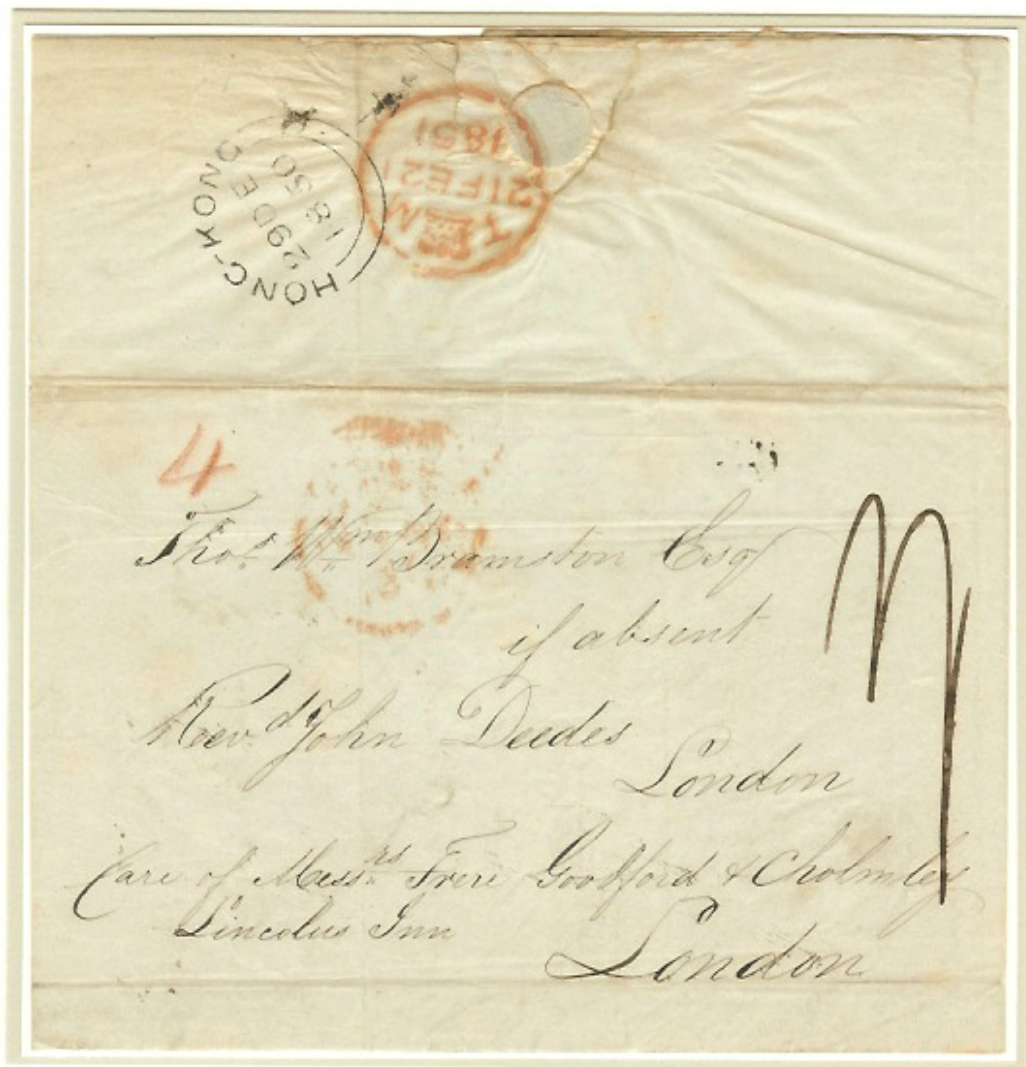 HONG-KONG
29 DE
1850
1851
21 FE 21
4
Thos. Wm. Bramston Esqr
if absent
Revd. John Deedes
London
Care of Messrs. Frere Goodford & Cholmley
Lincolns Inn
London